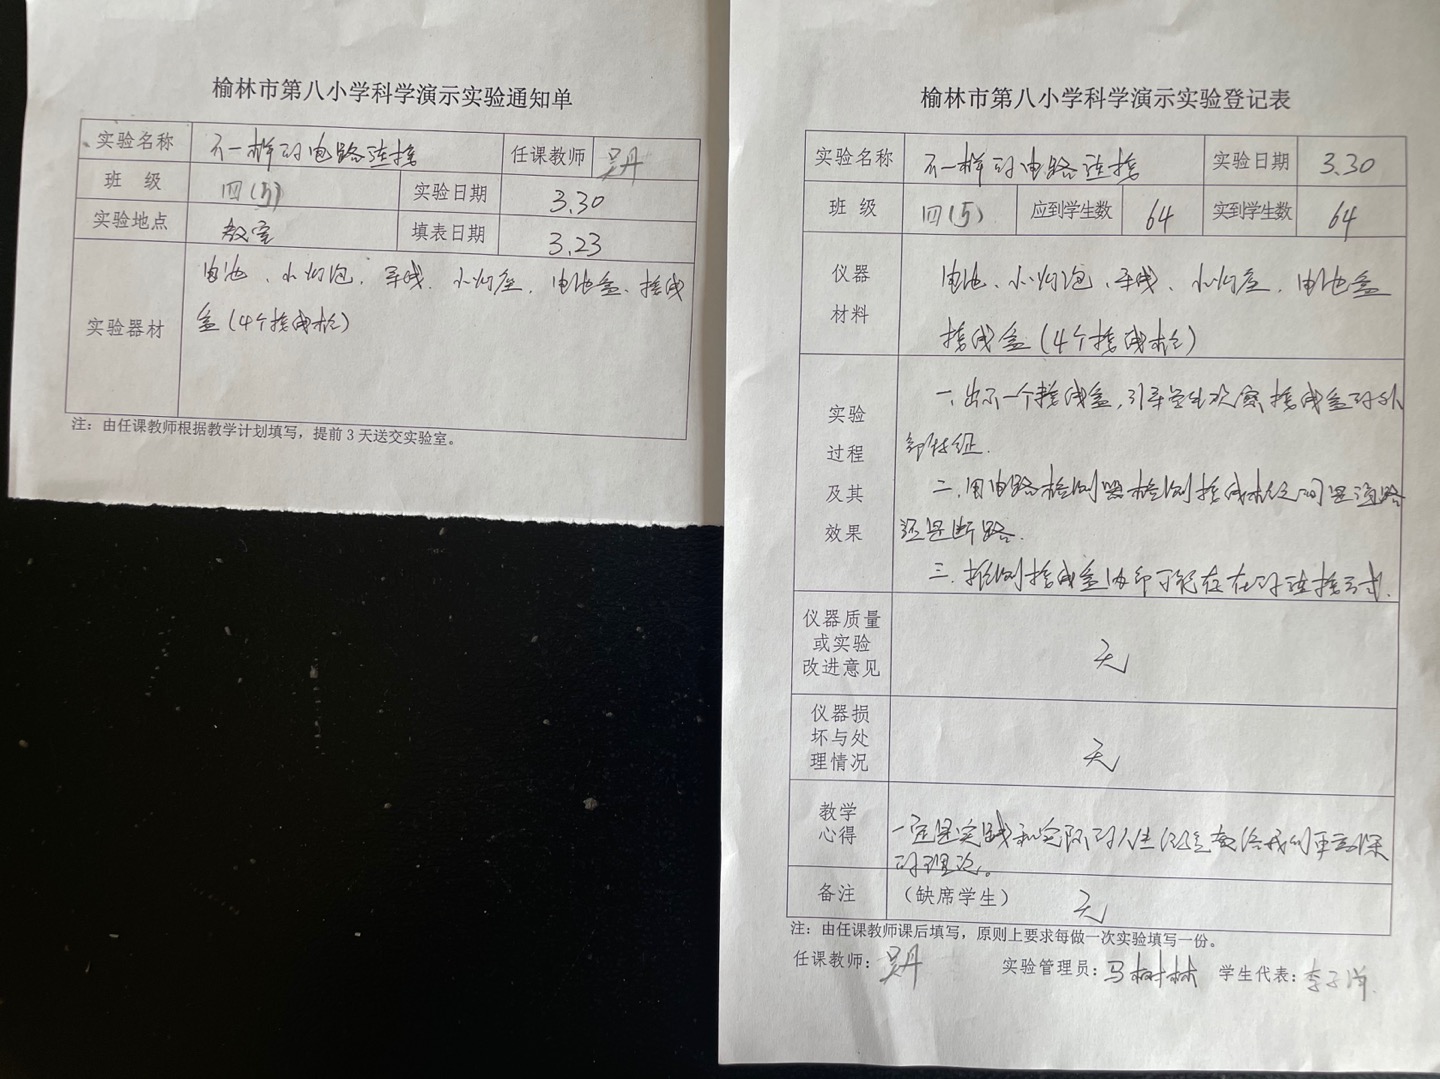 榆林市第八小学科学演示实验通知单
实验名称 不一样的电路连接 任课教师 吴丹
班 级 四(5) 实验日期 3.30
实验地点 教室 填表日期 3.23
实验器材 电池、小灯泡、导线、小灯座、电池盒、接线
盒(4个接线柱)
注：由任课教师根据教学计划填写，提前3天送交实验室。
榆林市第八小学科学演示实验登记表
实验名称 不一样的电路连接 实验日期 3.30
班 级 四(5) 应到学生数 64 实到学生数 64
仪器
材料
电池、小灯泡、导线、小灯座、电池盒
接线盒(4个接线柱)
实验
过程
及其
效果
一、出示一个接线盒，引导学生观察接线盒的外
部
二、用电路检测器检测接线柱之间是通路
还是断路.
三、推测接线盒内部可能存在的连接方式.
仪器质量
或实验
改进意见
无
仪器损
坏与处
理情况
无
教学
心得
一定是实践和实际的人生 教给我们更高深
的理论。
备注 （缺席学生） 无
注：由任课教师课后填写，原则上要求每做一次实验填写一份。
任课教师：吴丹 实验管理员：马树林 学生代表：李子洋